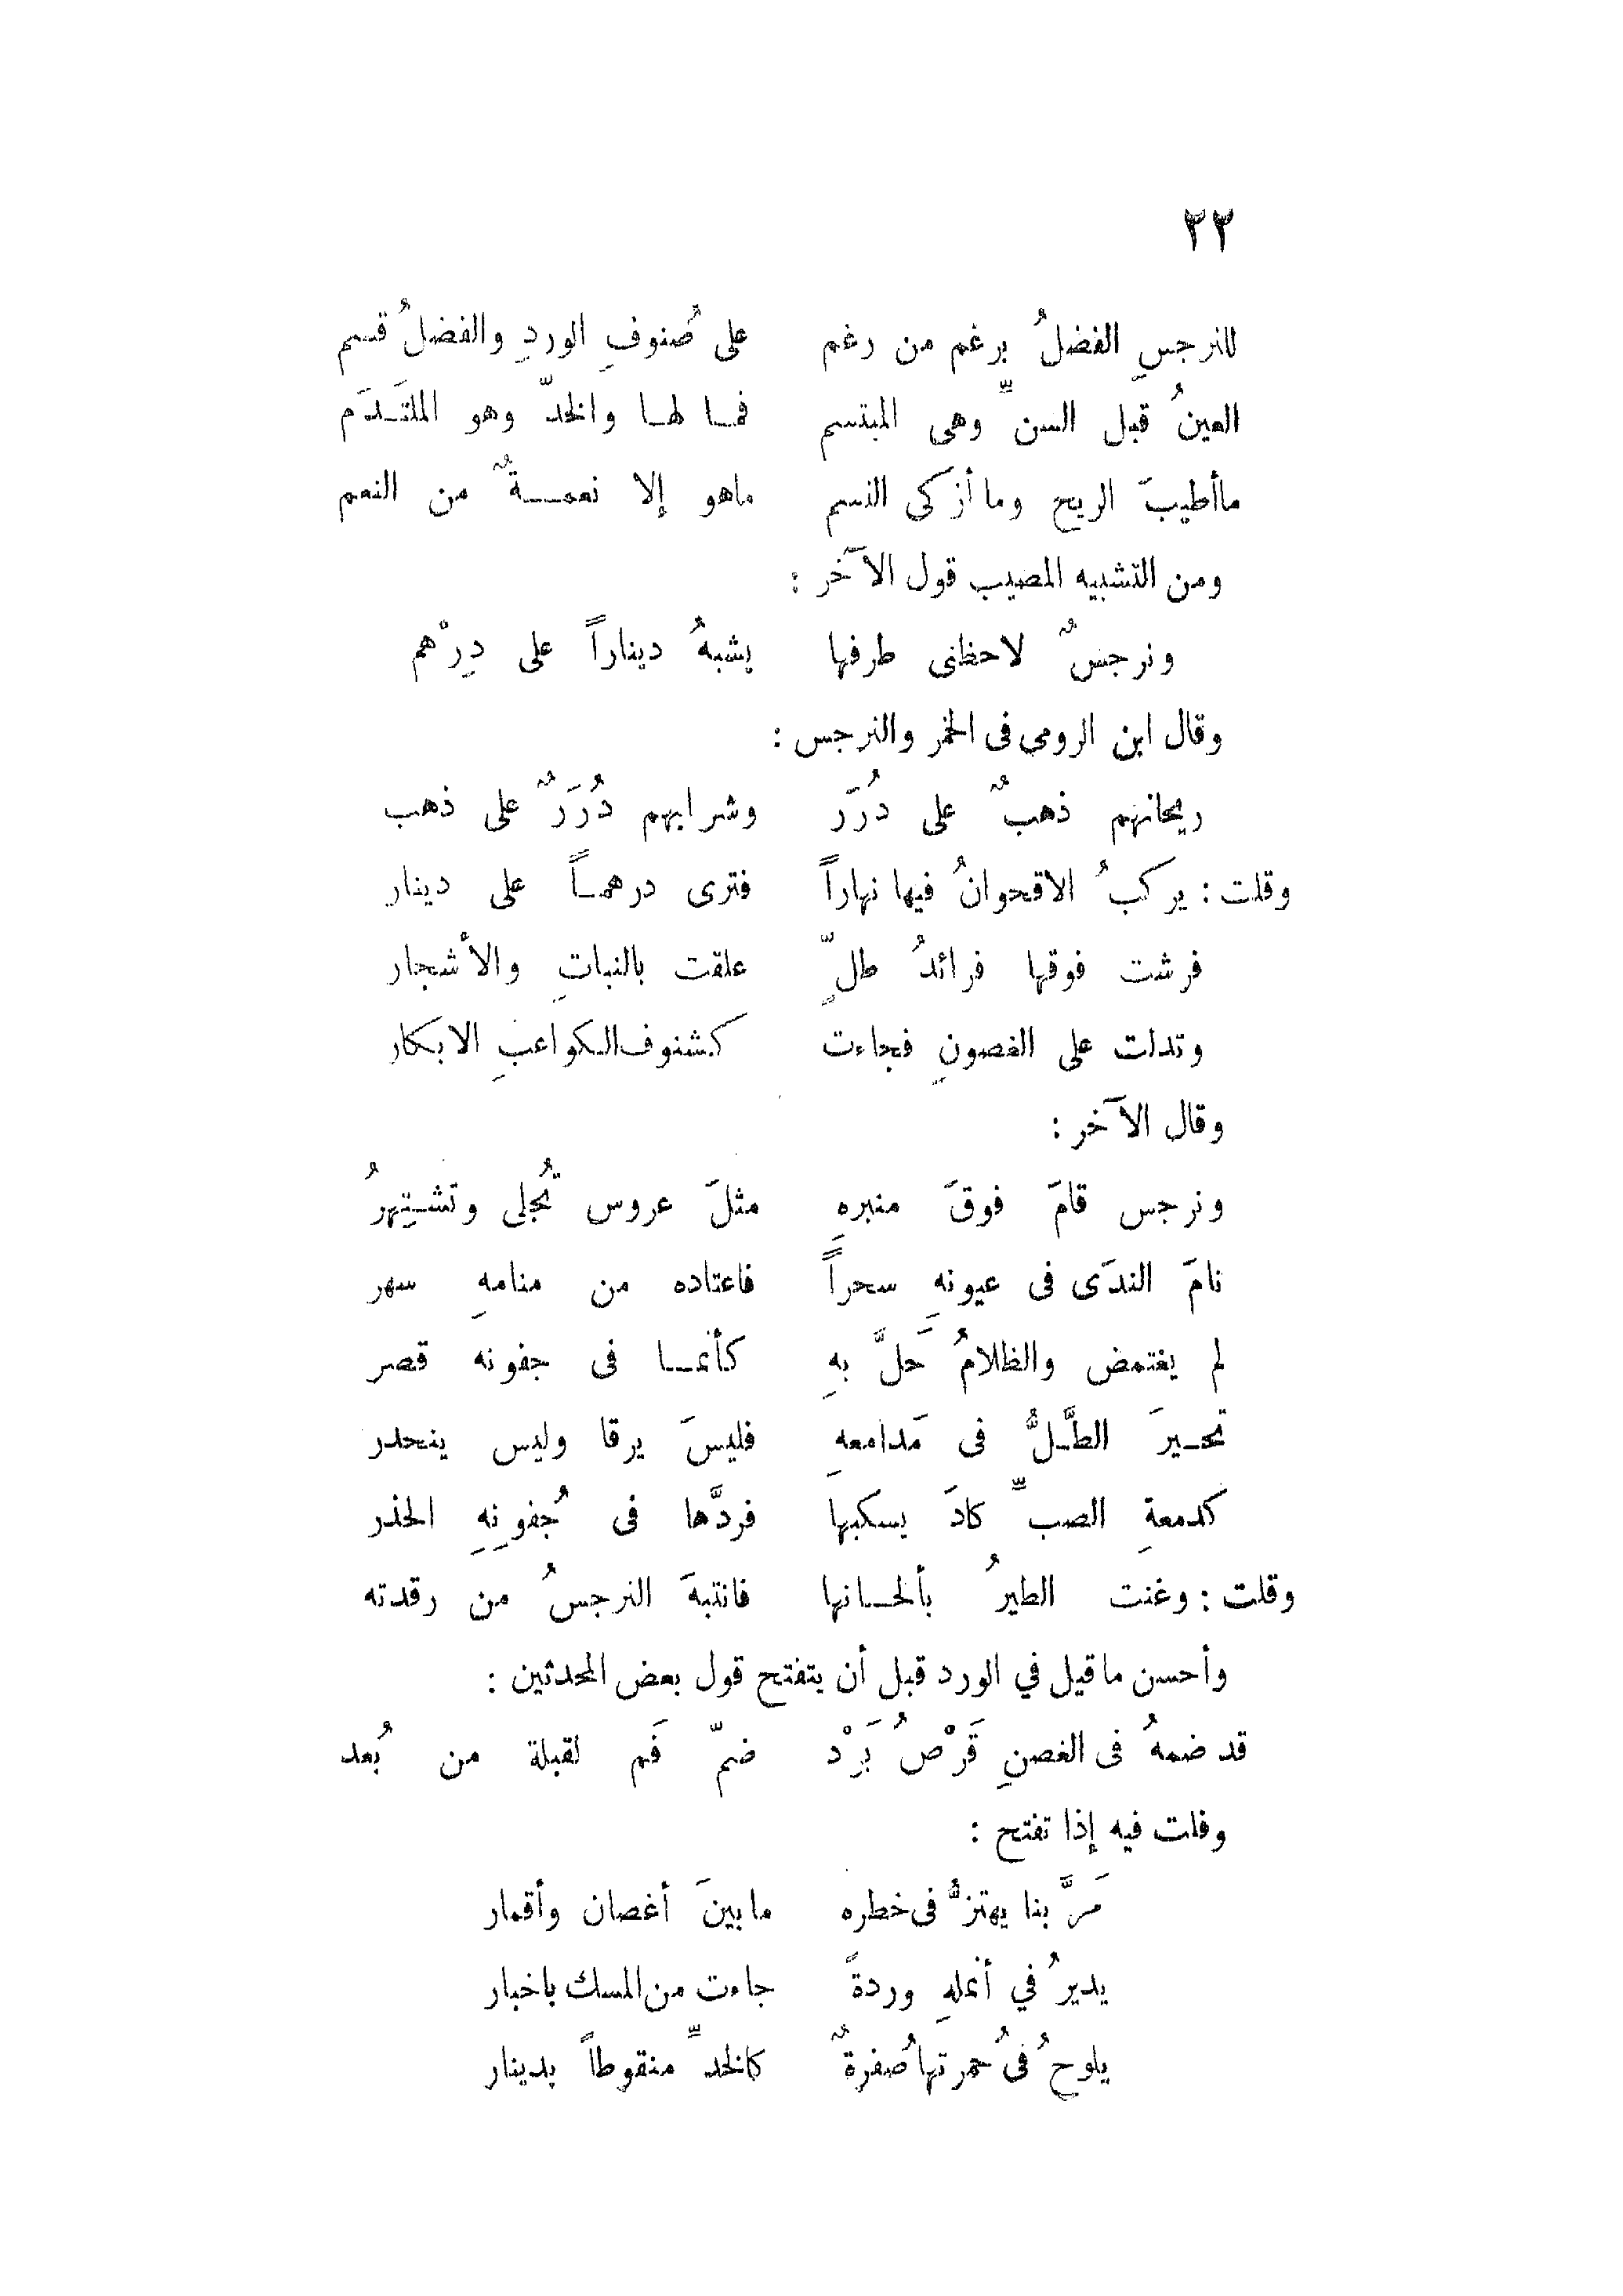 ٢٢
للنرجسِ الفضلُ برغم من رغم على صُنوفِ الوردِ والفضلُ قسم
العينُ قبل السنِّ وهى المبتسم فمـا لهـا والخدّ وهو الملتَـدَم
ماأطيبَ الريح وما أزكى النسم ماهو إلا نعمـةٌ من النعم
ومن التشبيه المصيب قول الآخر :
ونرجسٌ لاحظنى طرفها يشبهُ ديناراً على دِرْهم
وقال ابن الرومى فى الخمر والنرجس :
ريحانهم ذهبٌ على دُرَرَ وشرابهم دُرَرٌ على ذهب
وقلت : يركبُ الاقحوانُ فيها نهاراً فترى درهمـاً على دينار
فرشت فوقها فرائدُ طلٍّ علقت بالنباتِ والأشجار
وتدلت على الغصونِ فجاءت كشنوف الكواعبِ الابكار
وقال الآخر :
ونرجس قامَ فوقَ منبرهِ مثلَ عروس تُجلى وتشـتِهرُ
نامَ الندَى فى عيونهِ سحراً فاعتاده من منامهِ سهر
لم يغتمض والظلامُ حَلَّ بهِ كأنمـا فى جفونه قصر
تحـيرَ الطَّـلُّ فى مَدامعهِ فليسَ يرقا وليس ينحدر
كدمعةِ الصبِّ كادَ يسكبها فردَّها فى جُفونِهِ الحذر
وقلت : وغنت الطيرُ بألحـانها فانتبهَ النرجسُ من رقدته
وأحسن ماقيل في الورد قبل أن يتفتح قول بعض المحدثين :
قد ضمهُ فى الغصنِ قَرْصُ بَرْد ضمّ فَم لقبلة من بُعد
وقلت فيه إذا تفتح :
مَرَّ بنا يهتزُّ فى خطره مابينَ أغصان وأقمار
يديرُ في أنملهِ وردةً جاءت من المسك باخبار
يلوحُ فى حُمرتها صُفرةٌ كالخدِّ منقوطاً بدينار